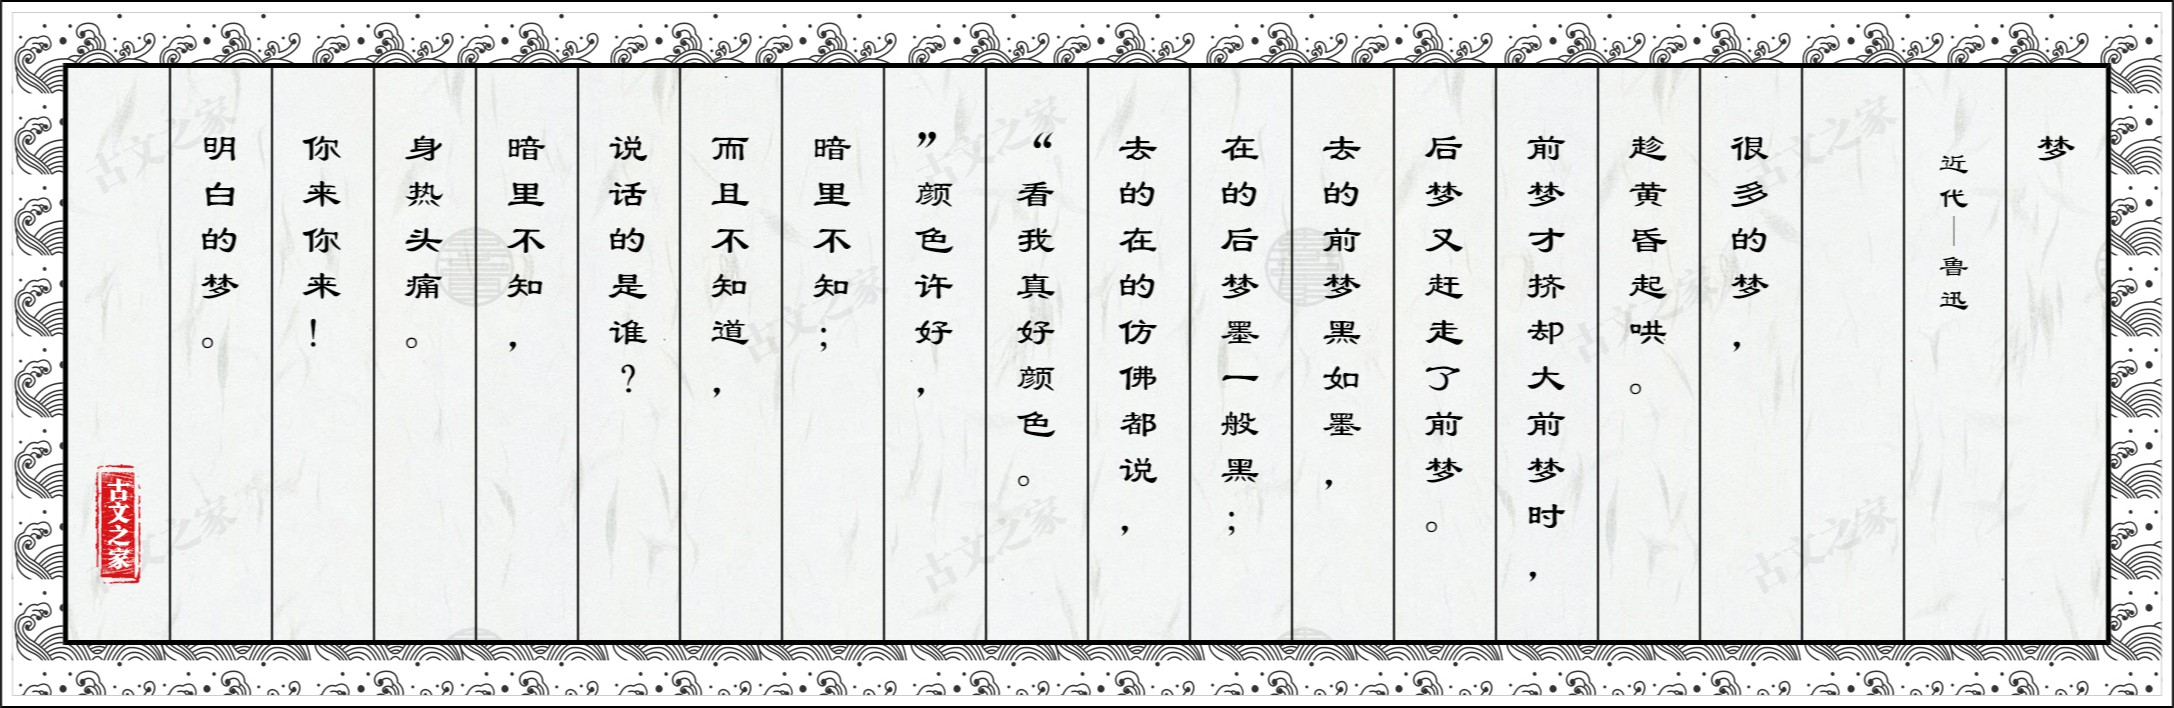 梦
近代—鲁迅
很多的梦，
趁黄昏起哄。
前梦才挤却大前梦时，
后梦又赶走了前梦。
去的前梦黑如墨，
在的后梦墨一般黑；
去的在的仿佛都说，
“看我真好颜色。
”颜色许好，
暗里不知；
而且不知道，
说话的是谁？
暗里不知，
身热头痛。
你来你来！
明白的梦。
古文之家